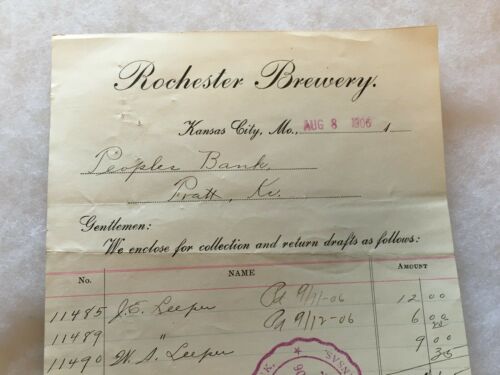 Rochester Brewery.
Kansas City, Mo., AUG 8 1906 1
Peoples Bank,
Pratt, Ks.
Gentlemen:
We enclose for collection and return drafts as follows:
No. NAME AMOUNT
11485 J. E. Leeper Pd 9/11-06 12 00
11489 " Pd 9/12-06 6 00
11490 W. S. Leeper 9 00
35